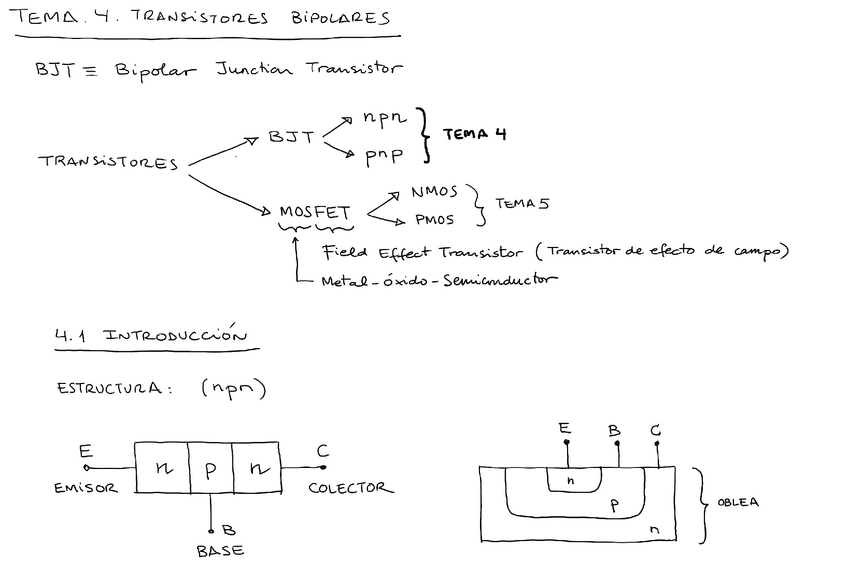 TEMA. 4. TRANSISTORES BIPOLARES
BJT ≡ Bipolar Junction Transistor
npn
BJT
TEMA 4
pnp
TRANSISTORES
NMOS
MOSFET
TEMA 5
PMOS
Field Effect Transistor (Transistor de efecto de campo)
Metal-óxido-Semiconductor
4.1 INTRODUCCIÓN
ESTRUCTURA: (npn)
E
n p n
C
EMISOR
COLECTOR
B
BASE
E B C
n
p
n
OBLEA